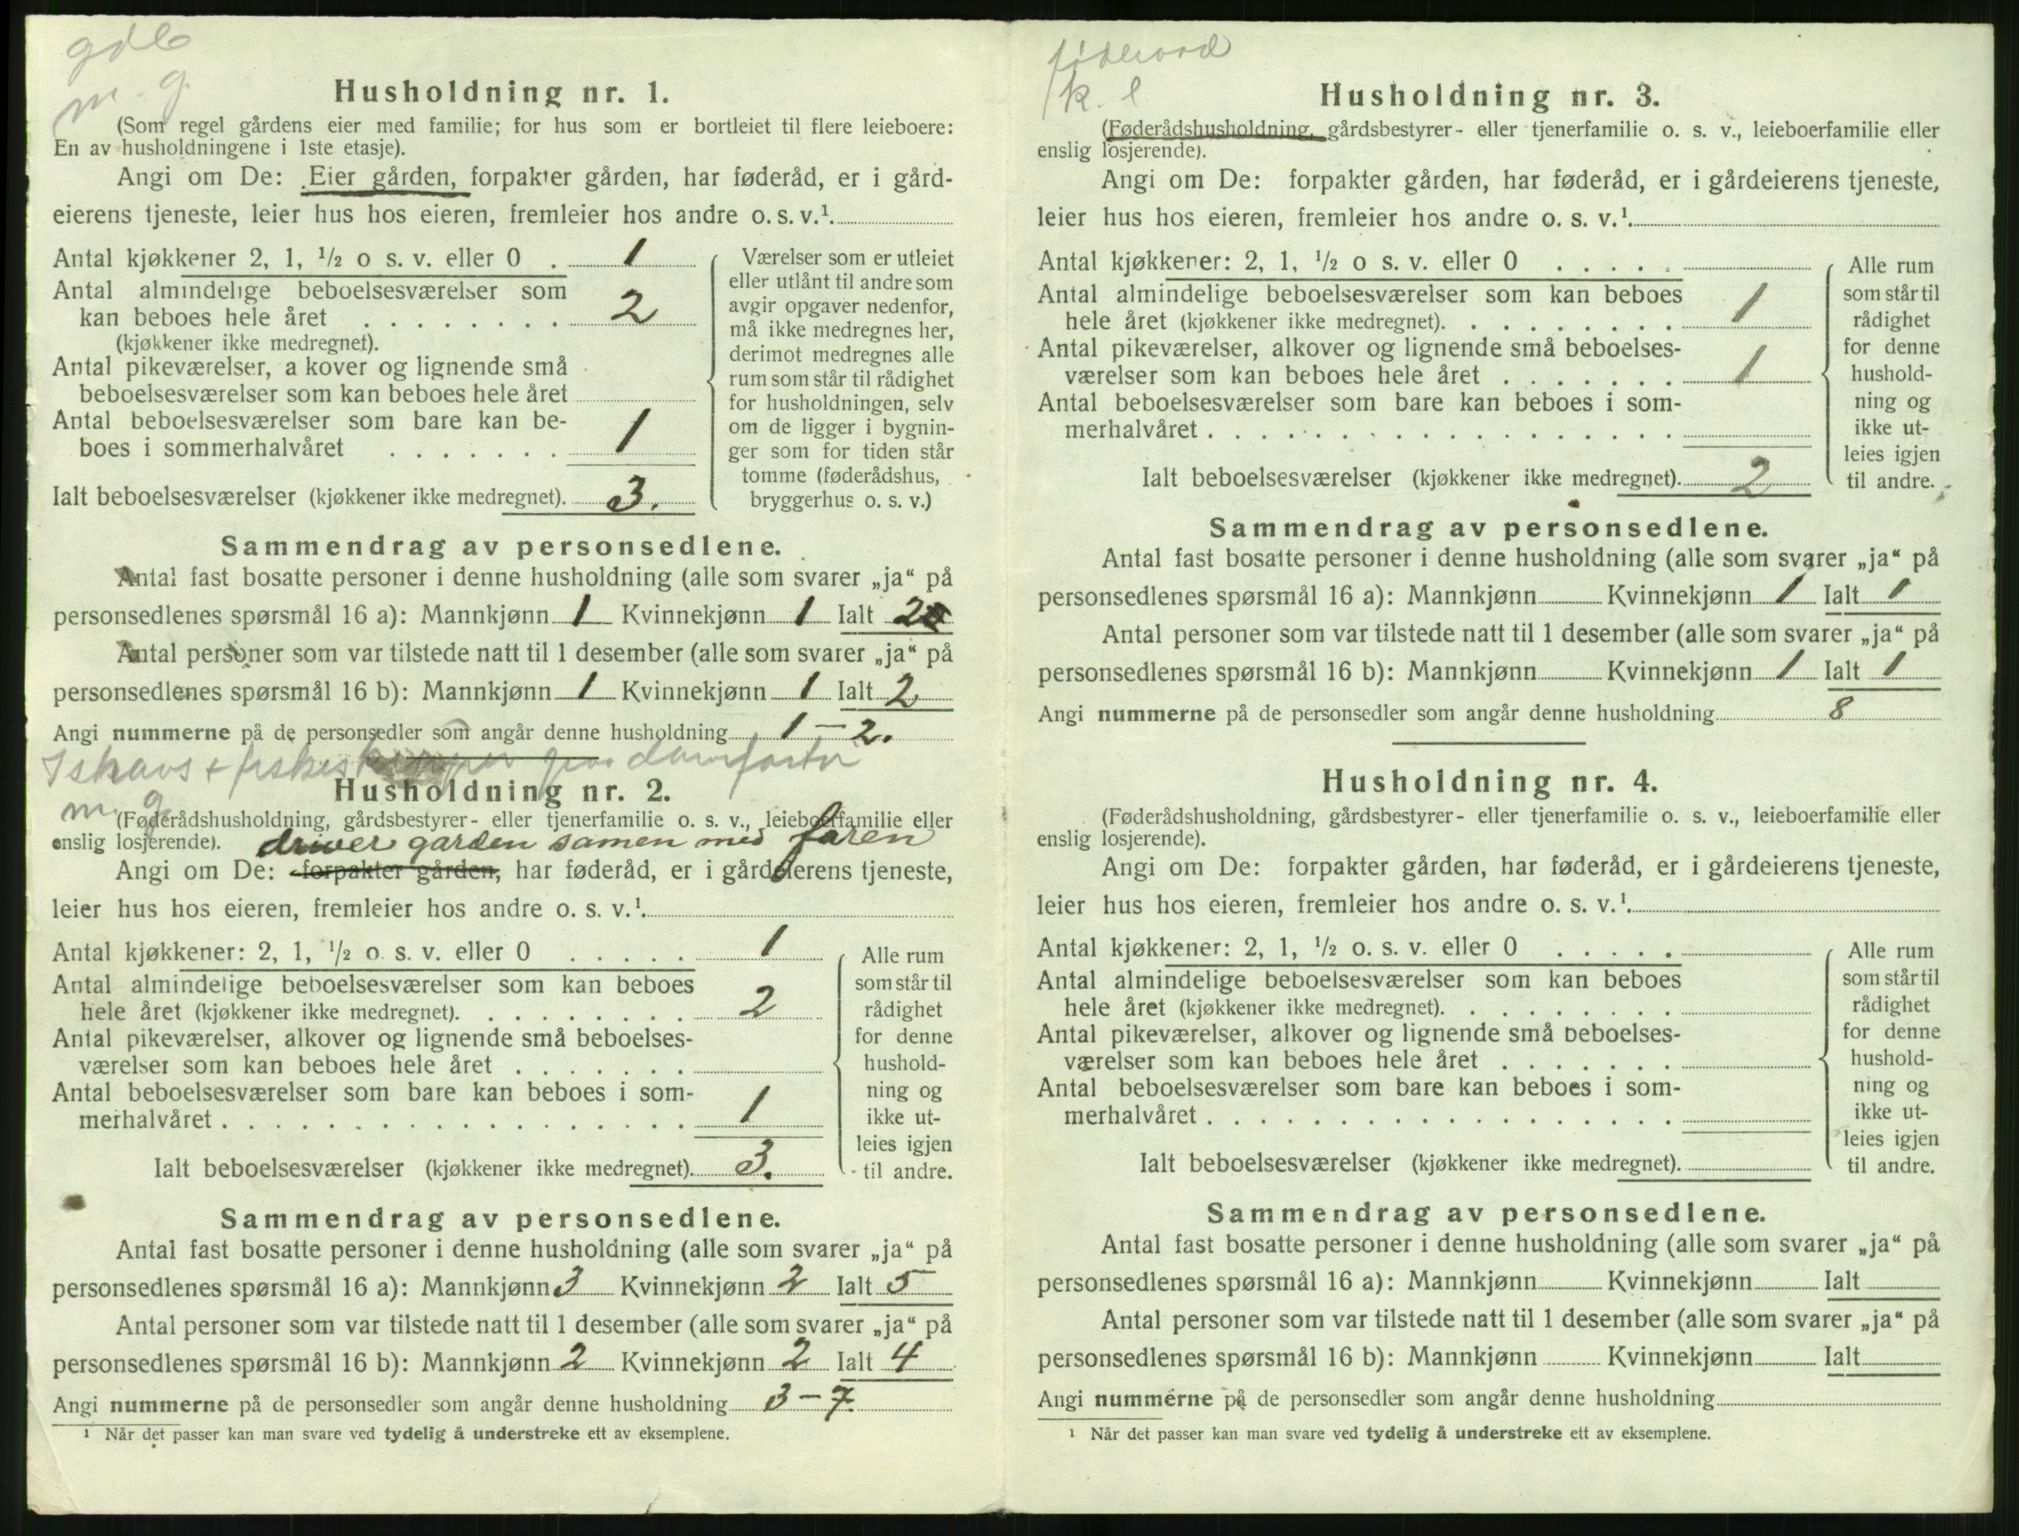 gdb
m. g.
Husholdning nr. 1.
(Som regel gårdens eier med familie; for hus som er bortleiet til flere leieboere:
En av husholdningene i 1ste etasje).
Angi om De: Eier gården, forpakter gården, har føderåd, er i gård-
eierens tjeneste, leier hus hos eieren, fremleier hos andre o. s. v.¹.
Antal kjøkkener 2, 1, ¹/₂ o s. v. eller 0 . 1
Antal almindelige beboelsesværelser som
kan beboes hele året . . . . . . . . 2
(kjøkkener ikke medregnet).
Antal pikeværelser, a kover og lignende små
beboelsesværelser som kan beboes hele året
Antal beboelsesværelser som bare kan be-
boes i sommerhalvåret . . . . . . . 1
Ialt beboelsesværelser (kjøkkener ikke medregnet). 3.
Værelser som er utleiet
eller utlånt til andre som
avgir opgaver nedenfor,
må ikke medregnes her,
derimot medregnes alle
rum som står til rådighet
for husholdningen, selv
om de ligger i bygnin-
ger som for tiden står
tomme (føderådshus,
bryggerhus o. s. v.)
Sammendrag av personsedlene.
Antal fast bosatte personer i denne husholdning (alle som svarer „ja“ på
personsedlenes spørsmål 16 a): Mannkjønn 1 Kvinnekjønn 1 Ialt 2
Antal personer som var tilstede natt til 1 desember (alle som svarer „ja“ på
personsedlenes spørsmål 16 b): Mannkjønn 1 Kvinnekjønn 1 Ialt 2
Angi nummerne på de personsedler som angår denne husholdning 1 – 2.
Ishavs + fiskeskipper
m. g.
Husholdning nr. 2.
(Føderådshusholdning, gårdsbestyrer- eller tjenerfamilie o. s. v., leieboerfamilie eller
enslig losjerende). driver garden samen med faren
Angi om De: forpakter gården, har føderåd, er i gårdeierens tjeneste,
leier hus hos eieren, fremleier hos andre o. s. v.¹.
Antal kjøkkener: 2, 1, ¹/₂ o. s. v. eller 0 . . . . . 1
Antal almindelige beboelsesværelser som kan beboes
hele året (kjøkkener ikke medregnet). . . . . . . . . 2
Antal pikeværelser, alkover og lignende små beboelses-
værelser som kan beboes hele året . . . . . . .
Antal beboelsesværelser som bare kan beboes i som-
merhalvåret . . . . . . . . . . . . . . . . . . 1
Ialt beboelsesværelser (kjøkkener ikke medregnet). 3.
Alle rum
som står til
rådighet
for denne
hushold-
ning og
ikke ut-
leies igjen
til andre.
Sammendrag av personsedlene.
Antal fast bosatte personer i denne husholdning (alle som svarer „ja“ på
personsedlenes spørsmål 16 a): Mannkjønn 3 Kvinnekjønn 2 Ialt 5
Antal personer som var tilstede natt til 1 desember (alle som svarer „ja“ på
personsedlenes spørsmål 16 b): Mannkjønn 2 Kvinnekjønn 2 Ialt 4
Angi nummerne på de personsedler som angår denne husholdning 3 – 7.
¹ Når det passer kan man svare ved tydelig å understreke ett av eksemplene.
føderåd
k. l
Husholdning nr. 3.
(Føderådshusholdning, gårdsbestyrer- eller tjenerfamilie o. s. v., leieboerfamilie eller
enslig losjerende).
Angi om De: forpakter gården, har føderåd, er i gårdeierens tjeneste,
leier hus hos eieren, fremleier hos andre o. s. v.¹.
Antal kjøkkener: 2, 1, ¹/₂ o s. v. eller 0 . . . . .
Antal almindelige beboelsesværelser som kan beboes
hele året (kjøkkener ikke medregnet). . . . . . . . . 1
Antal pikeværelser, alkover og lignende små beboelses-
værelser som kan beboes hele året . . . . . . . 1
Antal beboelsesværelser som bare kan beboes i som-
merhalvåret . . . . . . . . . . . . . . . . . .
Ialt beboelsesværelser (kjøkkener ikke medregnet). 2
Alle rum
som står til
rådighet
for denne
hushold-
ning og
ikke ut-
leies igjen
til andre.
Sammendrag av personsedlene.
Antal fast bosatte personer i denne husholdning (alle som svarer „ja“ på
personsedlenes spørsmål 16 a): Mannkjønn Kvinnekjønn 1 Ialt 1
Antal personer som var tilstede natt til 1 desember (alle som svarer „ja“ på
personsedlenes spørsmål 16 b): Mannkjønn Kvinnekjønn 1 Ialt 1
Angi nummerne på de personsedler som angår denne husholdning 8
Husholdning nr. 4.
(Føderådshusholdning, gårdsbestyrer- eller tjenerfamilie o. s. v., leieboerfamilie eller
enslig losjerende).
Angi om De: forpakter gården, har føderåd, er i gårdeierens tjeneste,
leier hus hos eieren, fremleier hos andre o. s. v.¹.
Antal kjøkkener: 2, 1, ¹/₂ o. s. v. eller 0 . . . . .
Antal almindelige beboelsesværelser som kan beboes
hele året (kjøkkener ikke medregnet). . . . . . . . .
Antal pikeværelser, alkover og lignende små beboelses-
værelser som kan beboes hele året . . . . . . .
Antal beboelsesværelser som bare kan beboes i som-
merhalvåret . . . . . . . . . . . . . . . . . .
Ialt beboelsesværelser (kjøkkener ikke medregnet).
Alle rum
som står til
rådighet
for denne
hushold-
ning og
ikke ut-
leies igjen
til andre.
Sammendrag av personsedlene.
Antal fast bosatte personer i denne husholdning (alle som svarer „ja“ på
personsedlenes spørsmål 16 a): Mannkjønn Kvinnekjønn Ialt
Antal personer som var tilstede natt til 1 desember (alle som svarer „ja“ på
personsedlenes spørsmål 16 b): Mannkjønn Kvinnekjønn Ialt
Angi nummerne på de personsedler som angår denne husholdning
¹ Når det passer kan man svare ved tydelig å understreke ett av eksemplene.